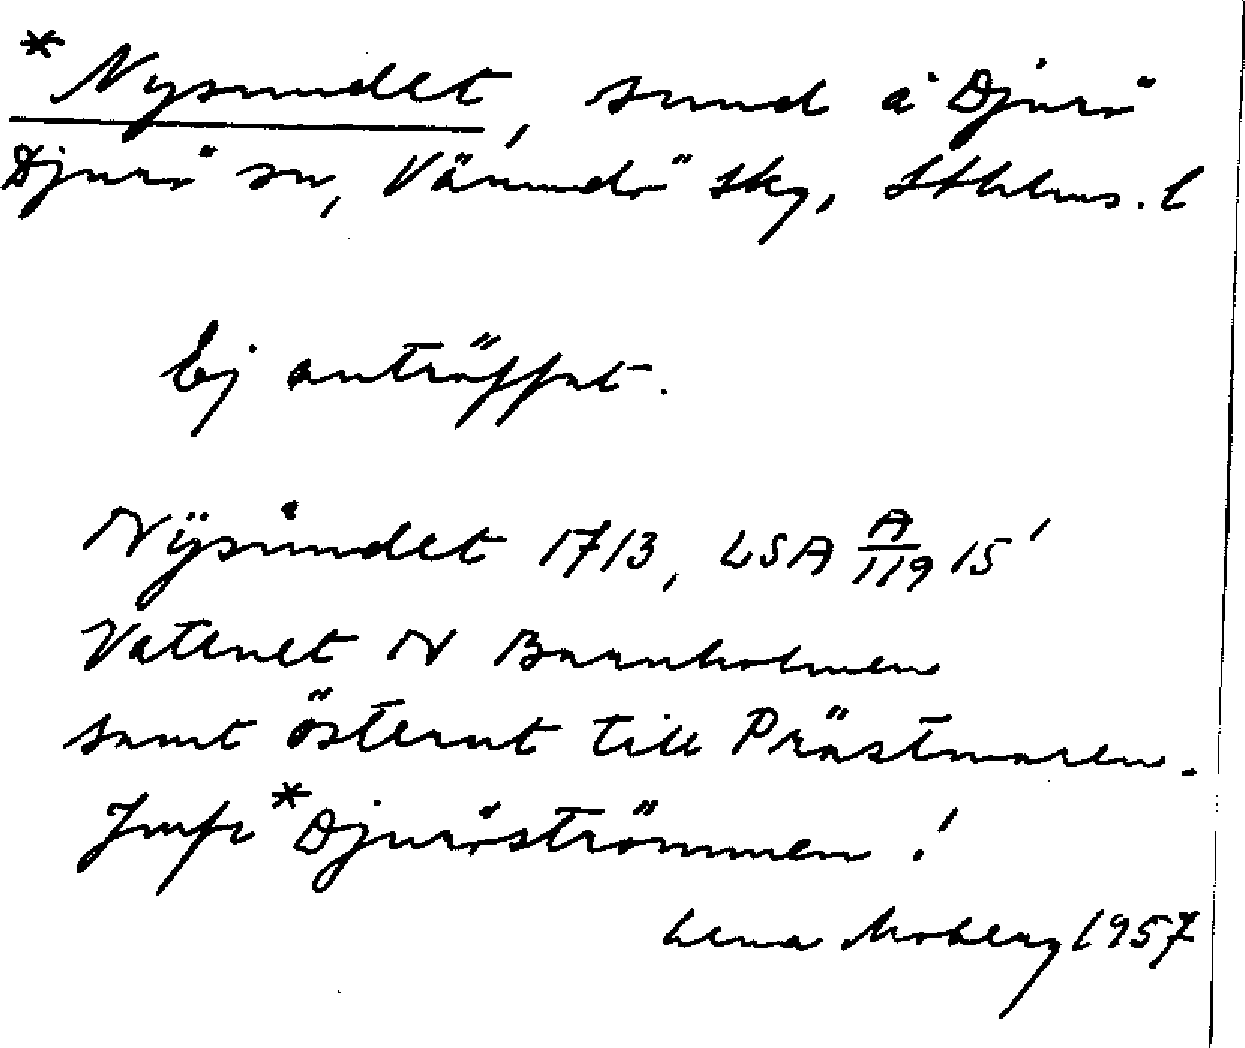 *Nysundet, sund å Djurö
Djurö sn, Värmdö skg, Sthlms. l
Ej anträffat.
Nÿsundet 1713, LSA A/119 15'
Vatenet N Barnholmen
samt österut till Prästmaren.
Jmfr *Djuröströmmen!
Lena Moberg 1957